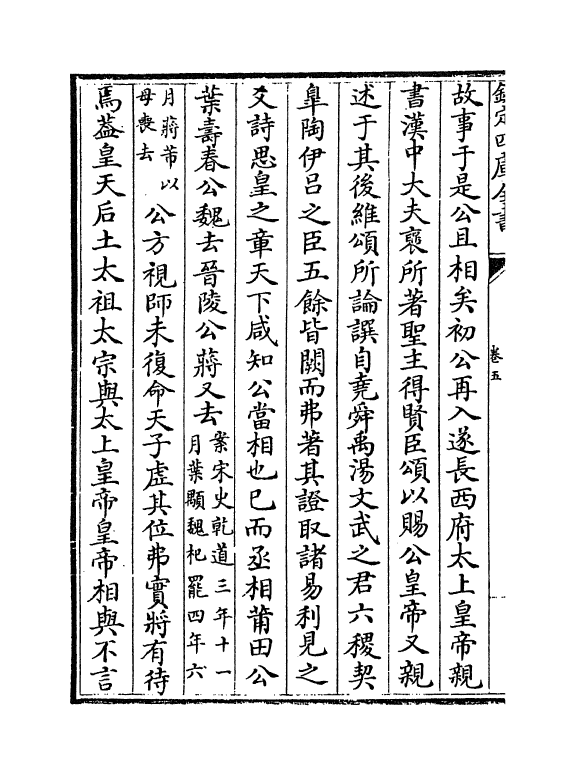 欽定四庫全書
卷五
故事于是公且相矣初公再入遂長西府太上皇帝親
書漢中大夫襃所著聖主得賢臣頌以賜公皇帝又親
述于其後維頌所論譔自堯舜禹湯文武之君六稷契
臯陶伊呂之臣五餘皆闕而弗著其證取諸易利見之
爻詩思皇之章天下咸知公當相也已而丞相莆田公
葉壽春公魏去晉陵公蔣又去案宋史乾道三年十一
月葉顒魏杞罷四年六
月蔣芾以
母喪去公方視師未復命天子虛其位弗實將有待
焉葢皇天后土太祖太宗與太上皇帝皇帝相與不言